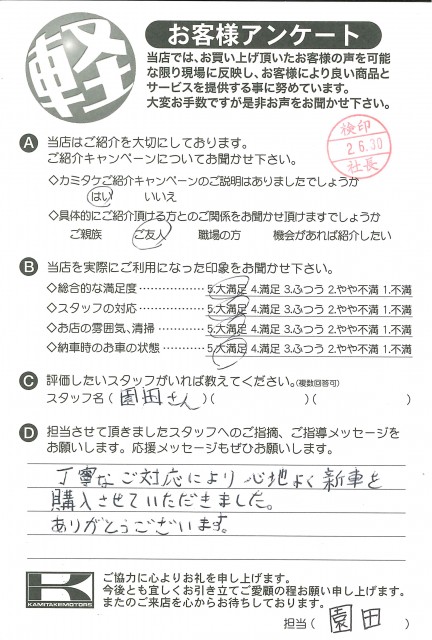 軽
お客様アンケート
当店では、お買い上げ頂いたお客様の声を可能
な限り現場に反映し、お客様により良い商品と
サービスを提供する事に努めています。
大変お手数ですが是非お声をお聞かせ下さい。
検印
2.6.30
社長
A 当店はご紹介を大切にしております。
ご紹介キャンペーンについてお聞かせ下さい。
◇カミタケご紹介キャンペーンのご説明はありましたでしょうか
はい いいえ
◇具体的にご紹介頂ける方とのご関係をお聞かせ頂けますでしょうか
ご親族 ご友人 職場の方 機会があれば紹介したい
B 当店を実際にご利用になった印象をお聞かせ下さい。
◇総合的な満足度………… 5.大満足 4.満足 3.ふつう 2.やや不満 1.不満
◇スタッフの対応………… 5.大満足 4.満足 3.ふつう 2.やや不満 1.不満
◇お店の雰囲気、清掃…… 5.大満足 4.満足 3.ふつう 2.やや不満 1.不満
◇納車時のお車の状態…… 5.大満足 4.満足 3.ふつう 2.やや不満 1.不満
C 評価したいスタッフがいれば教えてください。(複数回答可)
スタッフ名 ( 園田さん )( )( )
D 担当させて頂きましたスタッフへのご指摘、ご指導メッセージを
お願いします。応援メッセージもぜひお願いします。
丁寧なご対応により 心地よく新車を
購入させていただきました。
ありがとうございます。
K
KAMITAKE MOTORS
ご協力に心よりお礼を申し上げます。
今後とも宜しくお引き立てご愛顧の程お願い申し上げます。
またのご来店を心からお待ちしております。
担当 ( 園田 )